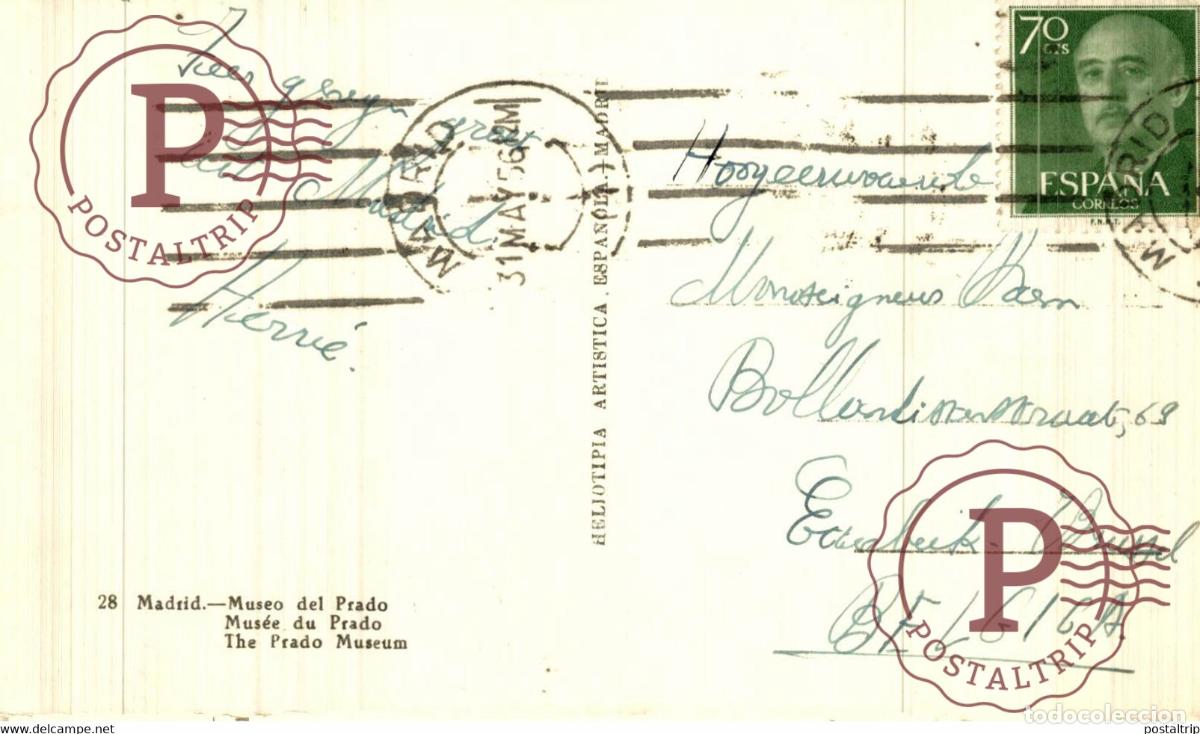 groet
uit Madrid
Hervé.
28 Madrid.—Museo del Prado
Musée du Prado
The Prado Museum
HELIOTIPIA ARTISTICA ESPAÑOLA - MADRID
MADRID
31 MAY 56
70 CTS
ESPAÑA
CORREOS
F.N.M.T.
MADRID
Hoogeerwaarde
Monseigneur
Bollandistenstraat, 69
Etterbeek
BELGICA
P
POSTALTRIP
P
POSTALTRIP
todocoleccion
www.todocoleccion.net
postaltrip